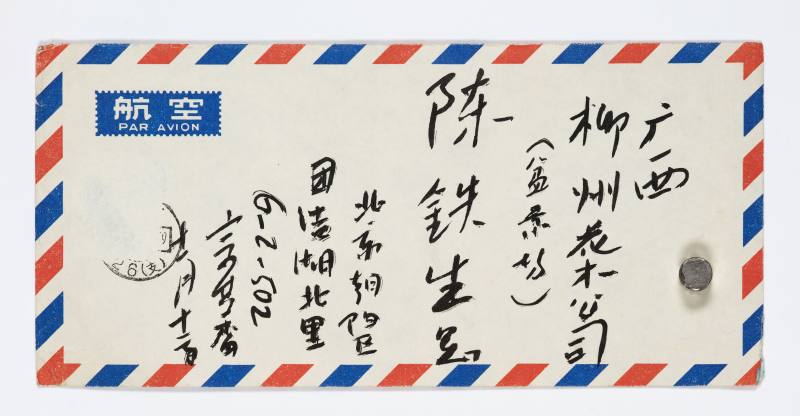 航空
PAR AVION
广西
柳州花木公司
(盆景场)
陈铁生
北京朝阳区
团结湖北里
6-2-502
十一月十二日